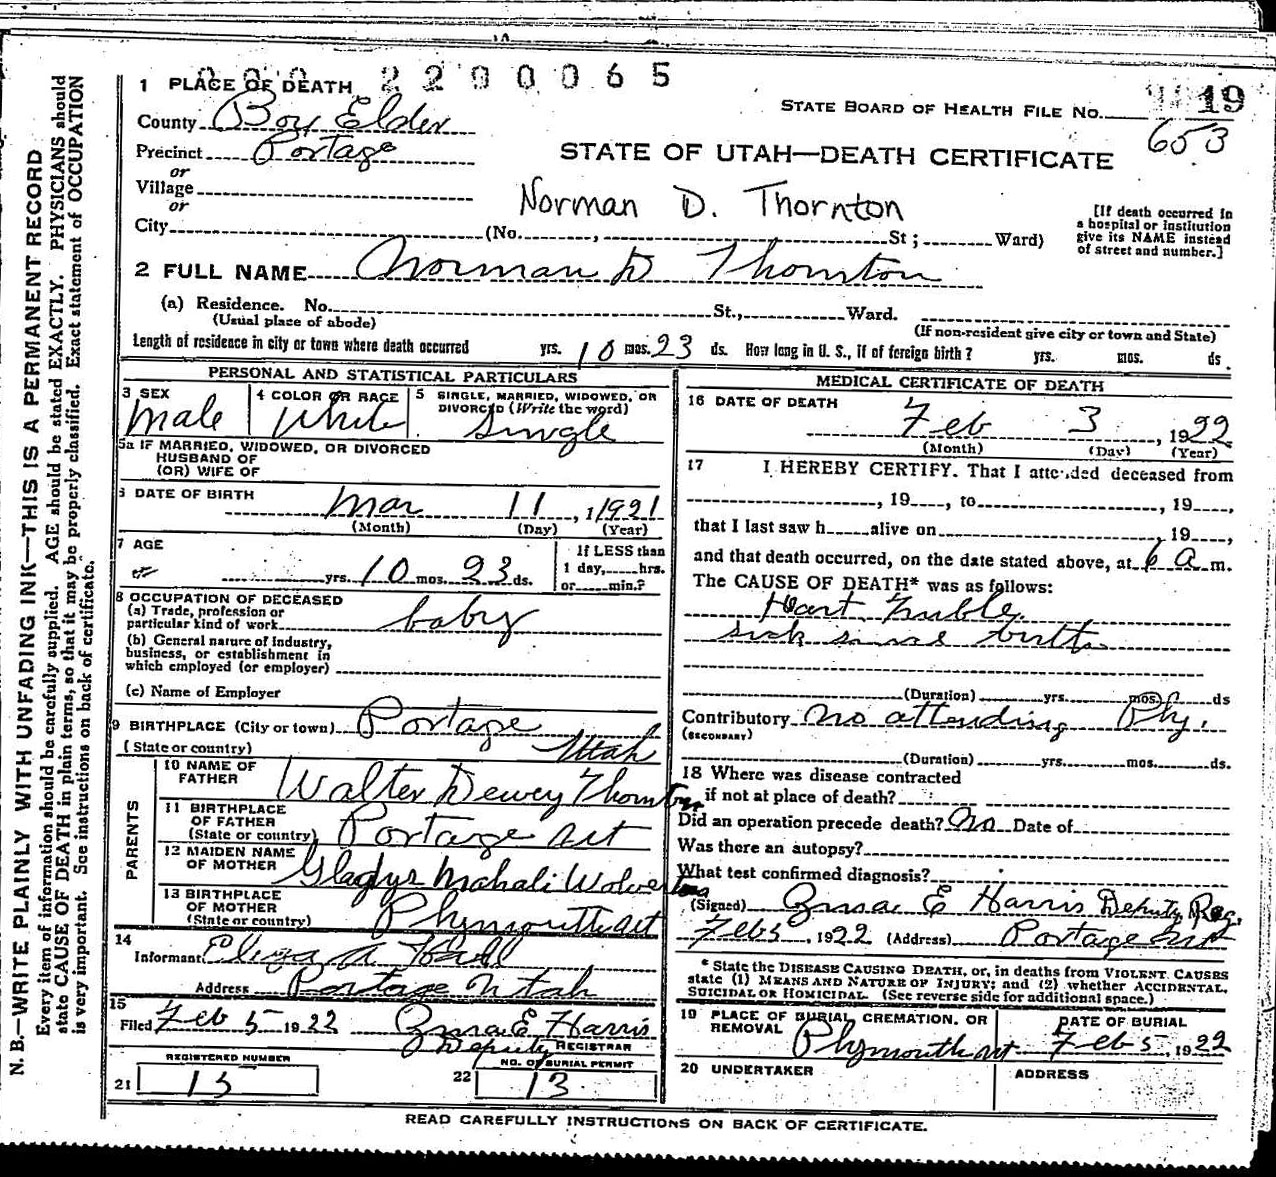 2200065
1 PLACE OF DEATH
STATE BOARD OF HEALTH FILE No. 19
653
County Box Elder
Precinct Portage
STATE OF UTAH—DEATH CERTIFICATE
or
Village
Norman D. Thornton
or
City (No. , St ; Ward)
[If death occurred in
a hospital or institution
give its NAME instead
of street and number.]
2 FULL NAME Norman D Thornton
(a) Residence. No. St., Ward.
(Usual place of abode)
(If non-resident give city or town and State)
Length of residence in city or town where death occurred yrs. 10 mos. 23 ds. How long in U. S., if of foreign birth ? yrs. mos. ds.
PERSONAL AND STATISTICAL PARTICULARS
3 SEX
Male
4 COLOR OR RACE
White
5 SINGLE, MARRIED, WIDOWED, OR
DIVORCED (Write the word)
Single
5a IF MARRIED, WIDOWED, OR DIVORCED
HUSBAND OF
(OR) WIFE OF
6 DATE OF BIRTH Mar 11 , 1921
(Month) (Day) (Year)
7 AGE
yrs. 10 mos. 23 ds.
If LESS than
1 day, hrs.
or min.?
8 OCCUPATION OF DECEASED
(a) Trade, profession or
particular kind of work baby
(b) General nature of industry,
business, or establishment in
which employed (or employer)
(c) Name of Employer
9 BIRTHPLACE (City or town) Portage
(State or country) Utah
PARENTS
10 NAME OF
FATHER Walter Dewey Thornton
11 BIRTHPLACE
OF FATHER
(State or country) Portage Ut
12 MAIDEN NAME
OF MOTHER Gladys Mahali
13 BIRTHPLACE
OF MOTHER
(State or country) Plymouth Ut
14
Informant Eliza A Hall
Address Portage Utah
15
Filed Feb 5 1922 Zma E Harris
Deputy REGISTRAR
REGISTERED NUMBER
21 15
NO. OF BURIAL PERMIT
22 13
MEDICAL CERTIFICATE OF DEATH
16 DATE OF DEATH
Feb 3 , 1922
(Month) (Day) (Year)
17 I HEREBY CERTIFY. That I attended deceased from
, 19 , to , 19 ,
that I last saw h alive on , 19 ,
and that death occurred, on the date stated above, at 6 a m.
The CAUSE OF DEATH* was as follows:
Heart Truble.
sick since birth
(Duration) yrs. mos. ds
Contributory No attending Phy.
(SECONDARY)
(Duration) yrs. mos. ds.
18 Where was disease contracted
if not at place of death?
Did an operation precede death? No Date of
Was there an autopsy?
What test confirmed diagnosis?
(Signed) Zma E Harris Deputy Reg.
Feb 5 , 1922 (Address) Portage Ut
* State the DISEASE CAUSING DEATH, or, in deaths from VIOLENT CAUSES
state (1) MEANS AND NATURE OF INJURY; and (2) whether ACCIDENTAL,
SUICIDAL OR HOMICIDAL. (See reverse side for additional space.)
19 PLACE OF BURIAL, CREMATION, OR
REMOVAL Plymouth Ut
DATE OF BURIAL
Feb 5 , 1922
20 UNDERTAKER
ADDRESS
READ CAREFULLY INSTRUCTIONS ON BACK OF CERTIFICATE.
N. B.—WRITE PLAINLY WITH UNFADING INK—THIS IS A PERMANENT RECORD
Every item of information should be carefully supplied. AGE should be stated EXACTLY. PHYSICIANS should
state CAUSE OF DEATH in plain terms, so that it may be properly classified. Exact statement of OCCUPATION
is very important. See instructions on back of certificate.